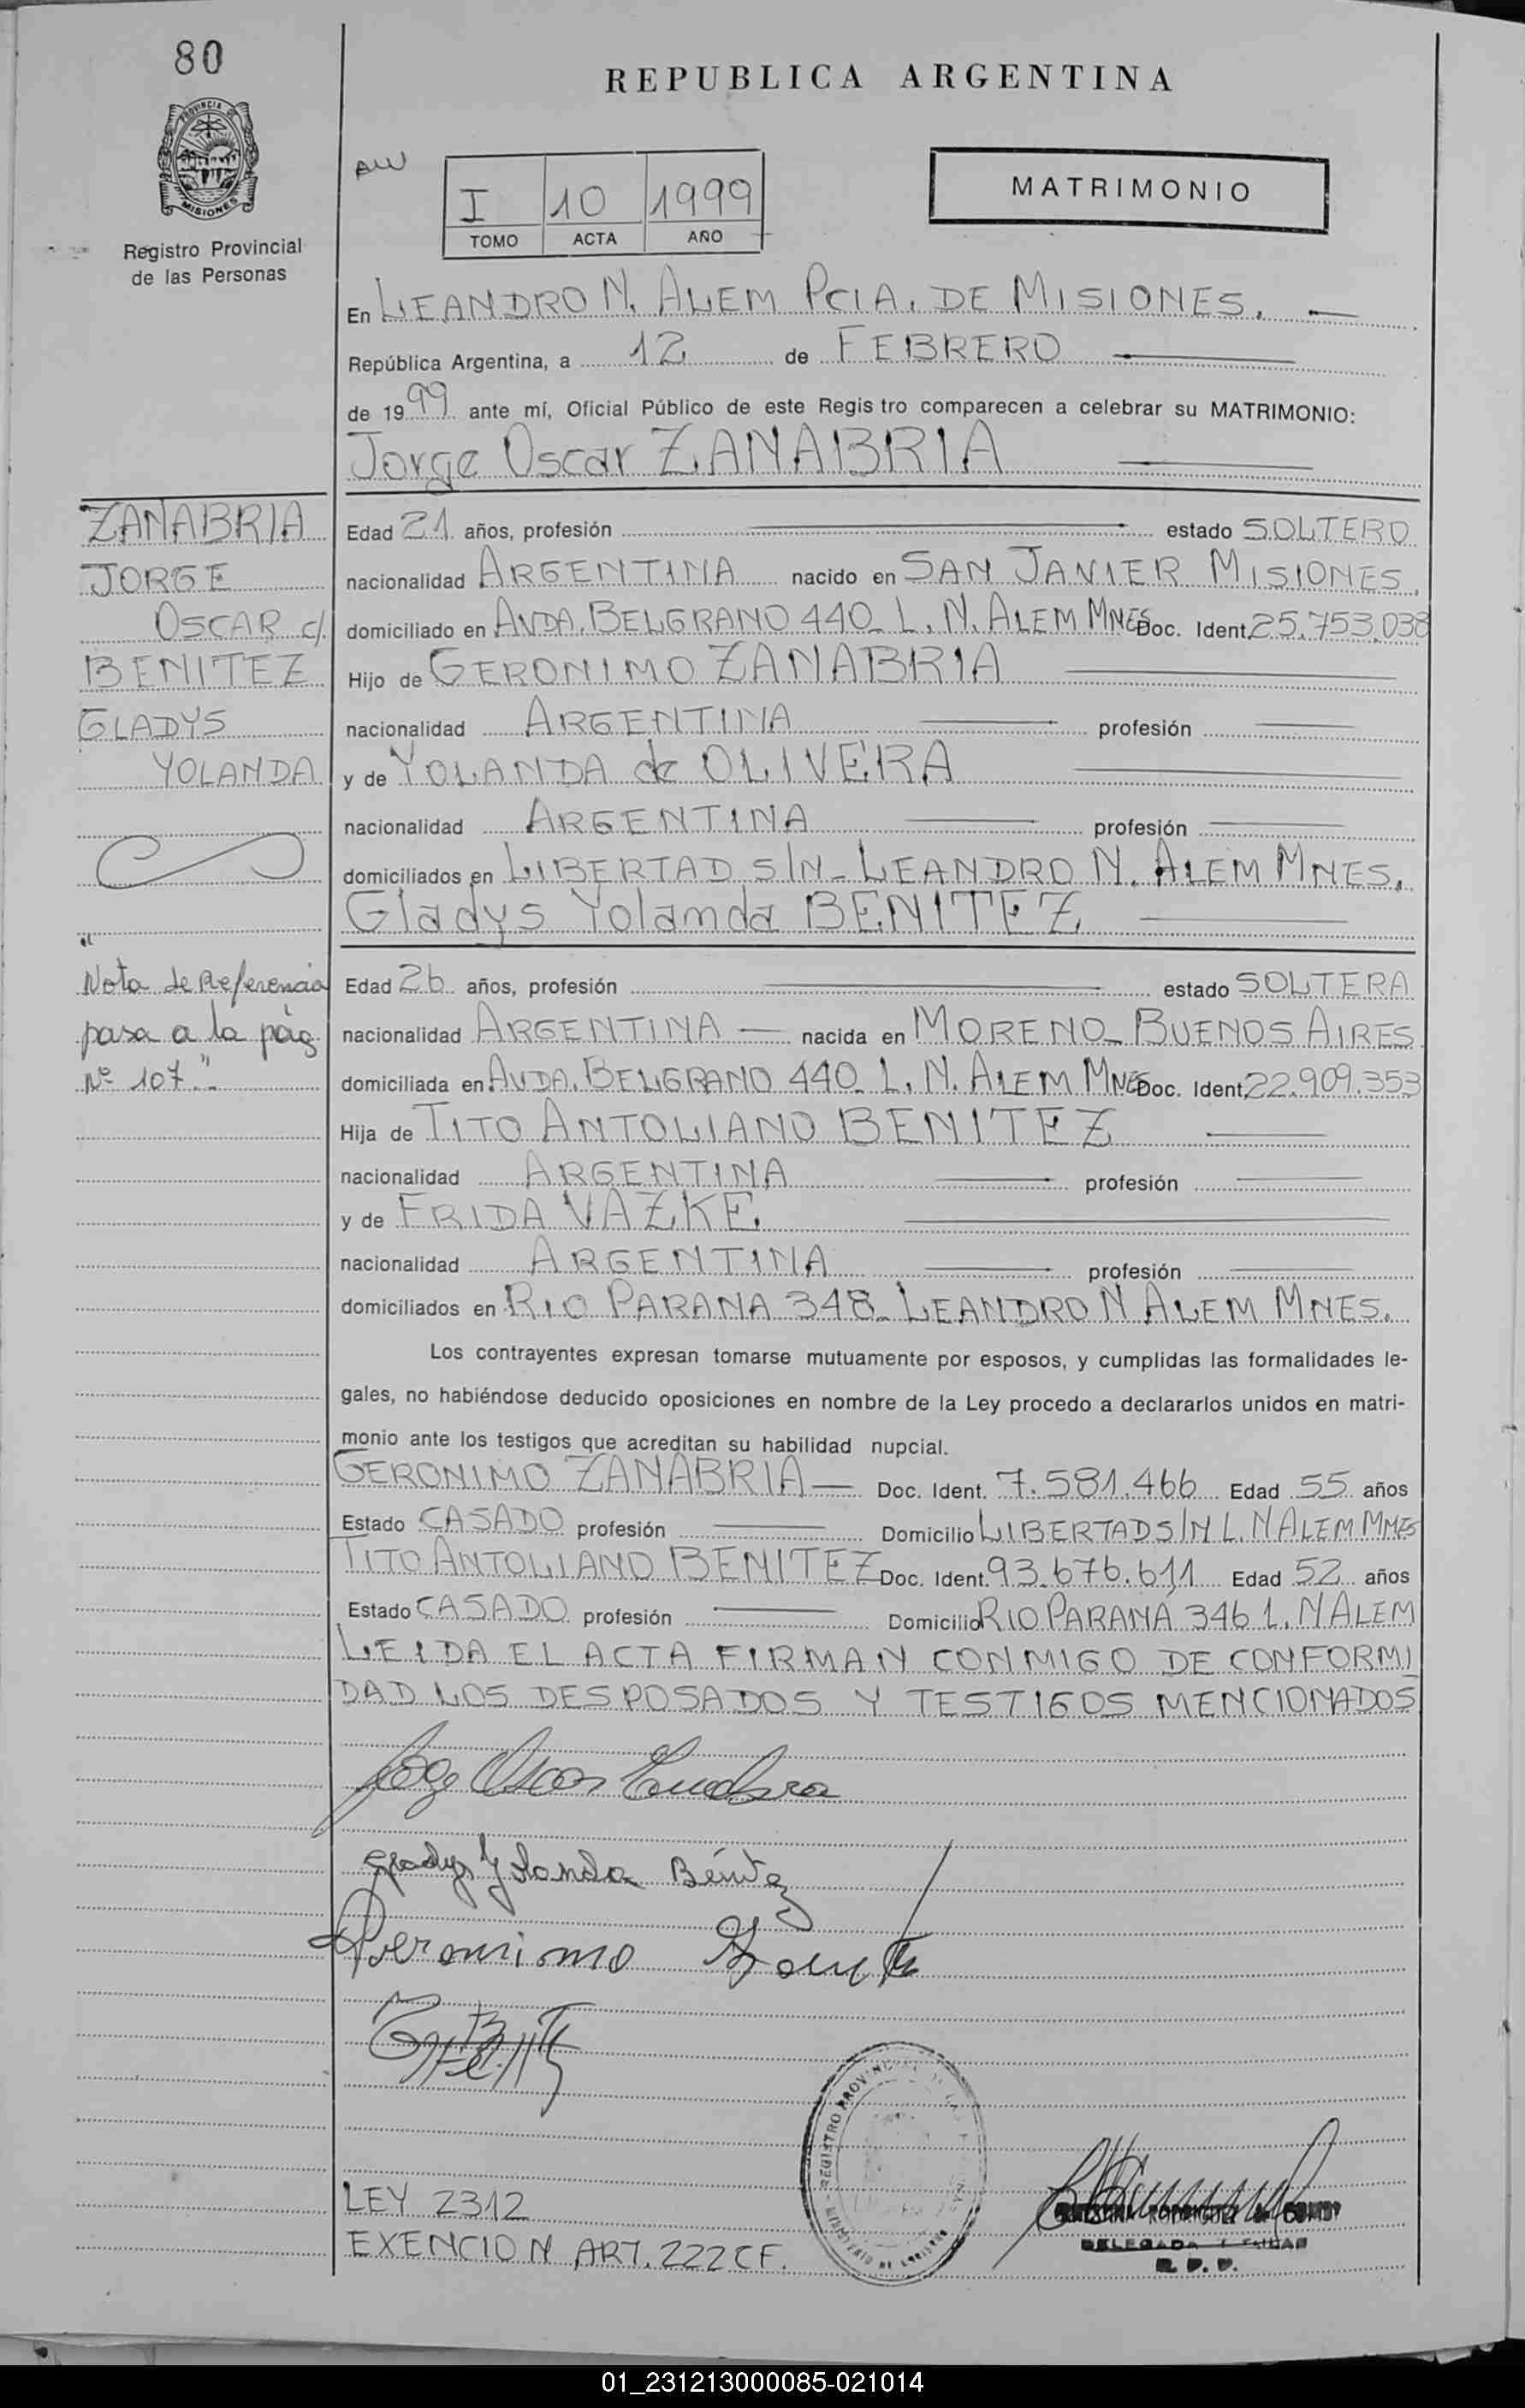 80
REPUBLICA ARGENTINA
PROVINCIA DE
MISIONES
Registro Provincial
de las Personas
I 10 1999
TOMO ACTA AÑO
MATRIMONIO
En LEANDRO N. ALEM PCIA. DE MISIONES.
República Argentina, a 12 de FEBRERO
de 1999 ante mí, Oficial Público de este Regis tro comparecen a celebrar su MATRIMONIO:
Jorge Oscar ZANABRIA
ZANABRIA
JORGE
OSCAR c/.
BENITEZ
GLADYS
YOLANDA
Edad 21 años, profesión estado SOLTERO
nacionalidad ARGENTINA nacido en SAN JAVIER MISIONES.
domiciliado en AVDA. BELGRANO 440_ L. N. ALEM MNES Doc. Ident. 25.753.038
Hijo de GERONIMO ZANABRIA
nacionalidad ARGENTINA profesión
y de YOLANDA de OLIVERA
nacionalidad ARGENTINA profesión
domiciliados en LIBERTAD S/N_ LEANDRO N. ALEM MNES.
Gladys Yolanda BENITEZ
"Nota de Referencia
pasa a la pág
Nº 107."
Edad 26 años, profesión estado SOLTERA
nacionalidad ARGENTINA — nacida en MORENO_ BUENOS AIRES
domiciliada en AVDA. BELGRANO 440_ L. N. ALEM MNES Doc. Ident. 22.909.353
Hija de TITO ANTOLIANO BENITEZ
nacionalidad ARGENTINA profesión
y de FRIDA VAZKE.
nacionalidad ARGENTINA profesión
domiciliados en RIO PARANA 348_ LEANDRO N ALEM MNES.
Los contrayentes expresan tomarse mutuamente por esposos, y cumplidas las formalidades le-
gales, no habiéndose deducido oposiciones en nombre de la Ley procedo a declararlos unidos en matri-
monio ante los testigos que acreditan su habilidad nupcial.
GERONIMO ZANABRIA — Doc. Ident. 7.581.466 Edad 55 años
Estado CASADO profesión Domicilio LIBERTAD S/N L. N ALEM MNES
TITO ANTOLIANO BENITEZ Doc. Ident. 93.676.611 Edad 52 años
Estado CASADO profesión Domicilio RIO PARANÁ 346 L. N ALEM
LEIDA EL ACTA FIRMAN CONMIGO DE CONFORMI
DAD LOS DESPOSADOS Y TESTIGOS MENCIONADOS
Jorge Oscar Zanabria
Gladys Yolanda Bénitez
Geronimo
REGISTRO PROVINCIAL DE LAS
MINISTERIO DE GOBIERNO
RODRIGUEZ
DELEGADA TITULAR
R. P. P.
LEY 2312
EXENCION ART. 222 CF.
01_231213000085-021014